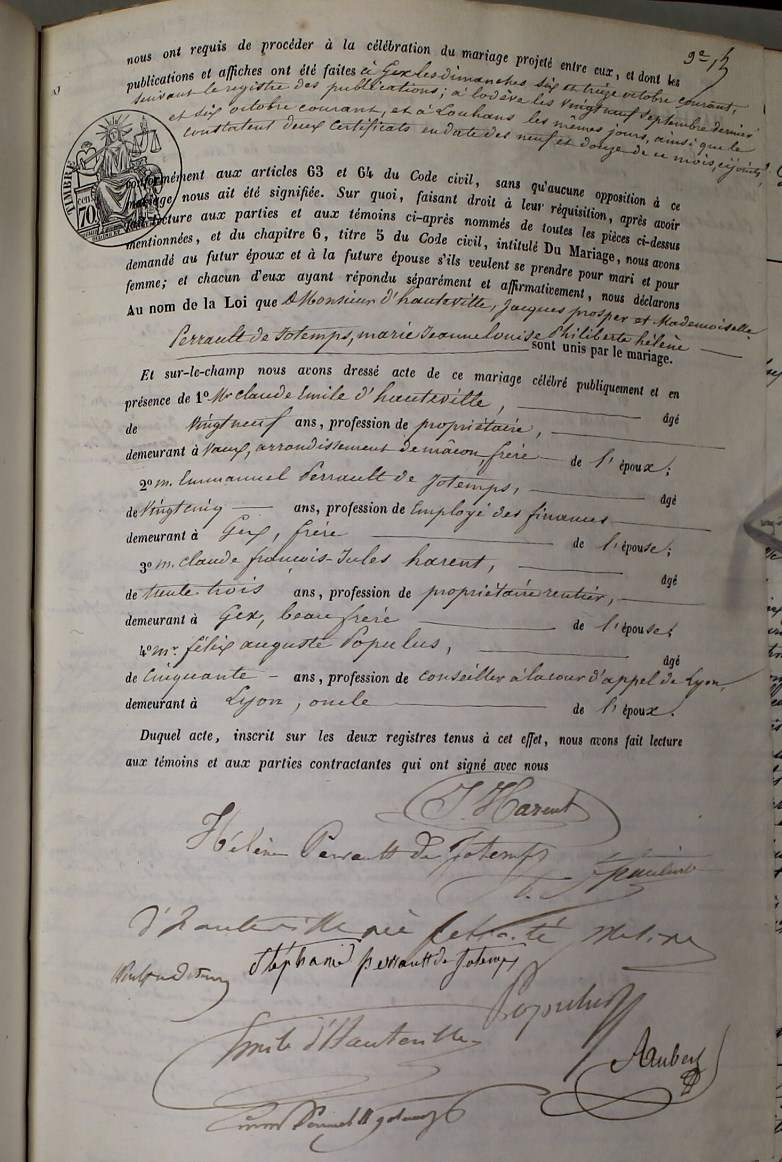 nous ont requis de procéder à la célébration du mariage projeté entre eux, et dont les
publications et affiches ont été faites à Gex les dimanches six et treize octobre courant,
suivant le registre des publications; à Lodève les vingt neuf septembre dernier
et six octobre courant, et à Louhans les mêmes jours, ainsi que le
constatent deux certificats en date des neuf et douze de ce mois, ci joints,
TIMBRE
cent.
70
conformément aux articles 63 et 64 du Code civil, sans qu'aucune opposition à ce
mariage nous ait été signifiée. Sur quoi, faisant droit à leur réquisition, après avoir
fait lecture aux parties et aux témoins ci-après nommés de toutes les pièces ci-dessus
mentionnées, et du chapitre 6, titre 5 du Code civil, intitulé Du Mariage, nous avons
demandé au futur époux et à la future épouse s'ils veulent se prendre pour mari et pour
femme; et chacun d'eux ayant répondu séparément et affirmativement, nous déclarons
Au nom de la Loi que Monsieur d'hauteville, Jacques prosper et Mademoiselle
Perrault de Jotemps, marie Jeanne Louise Philiberte hélène
sont unis par le mariage.
Et sur-le-champ nous avons dressé acte de ce mariage célébré publiquement et en
présence de 1º Mr claude Emile d'hauteville, âgé
de vingt neuf ans, profession de propriétaire,
demeurant à Vaux, arrondissement de mâcon frère de l'époux;
2º m. Emmanuel Perrault de Jotemps, âgé
de Vingt cinq ans, profession de Employé des finances
demeurant à Gex, frère de l'épouse;
3º m. claude françois-Jules harent, âgé
de trente trois ans, profession de propriétaire rentier,
demeurant à Gex, beau frère de l'épouse;
4º mr. félix auguste Populus, âgé
de Cinquante ans, profession de conseiller à la cour d'appel de Lyon,
demeurant à Lyon, oncle de l'époux.
Duquel acte, inscrit sur les deux registres tenus à cet effet, nous avons fait lecture
aux témoins et aux parties contractantes qui ont signé avec nous
J. Harent
Hélène Perrault de Jotemps
d'hauteville née
Stéphanie perrault de Jotemps
Populus
Emile d'Hauteville